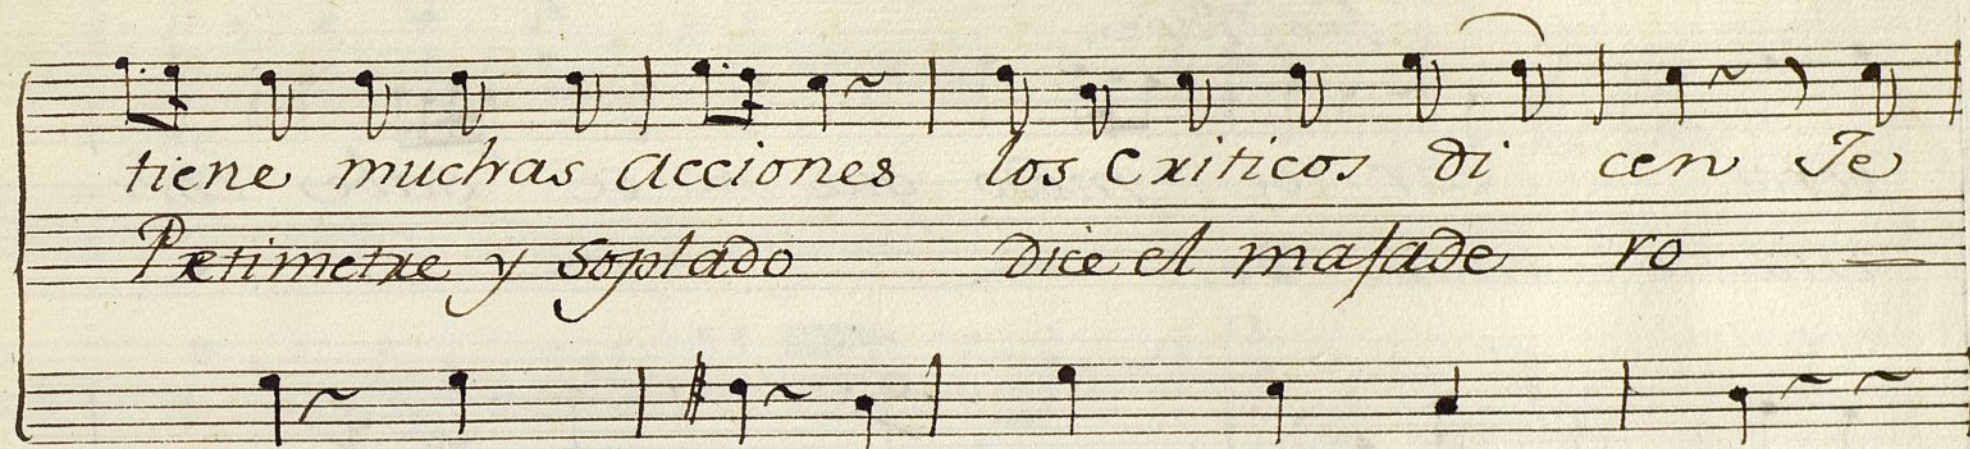 tiene muchas acciones los Criticos di cen Je
Petimetre y Soplado Dice el majade ro